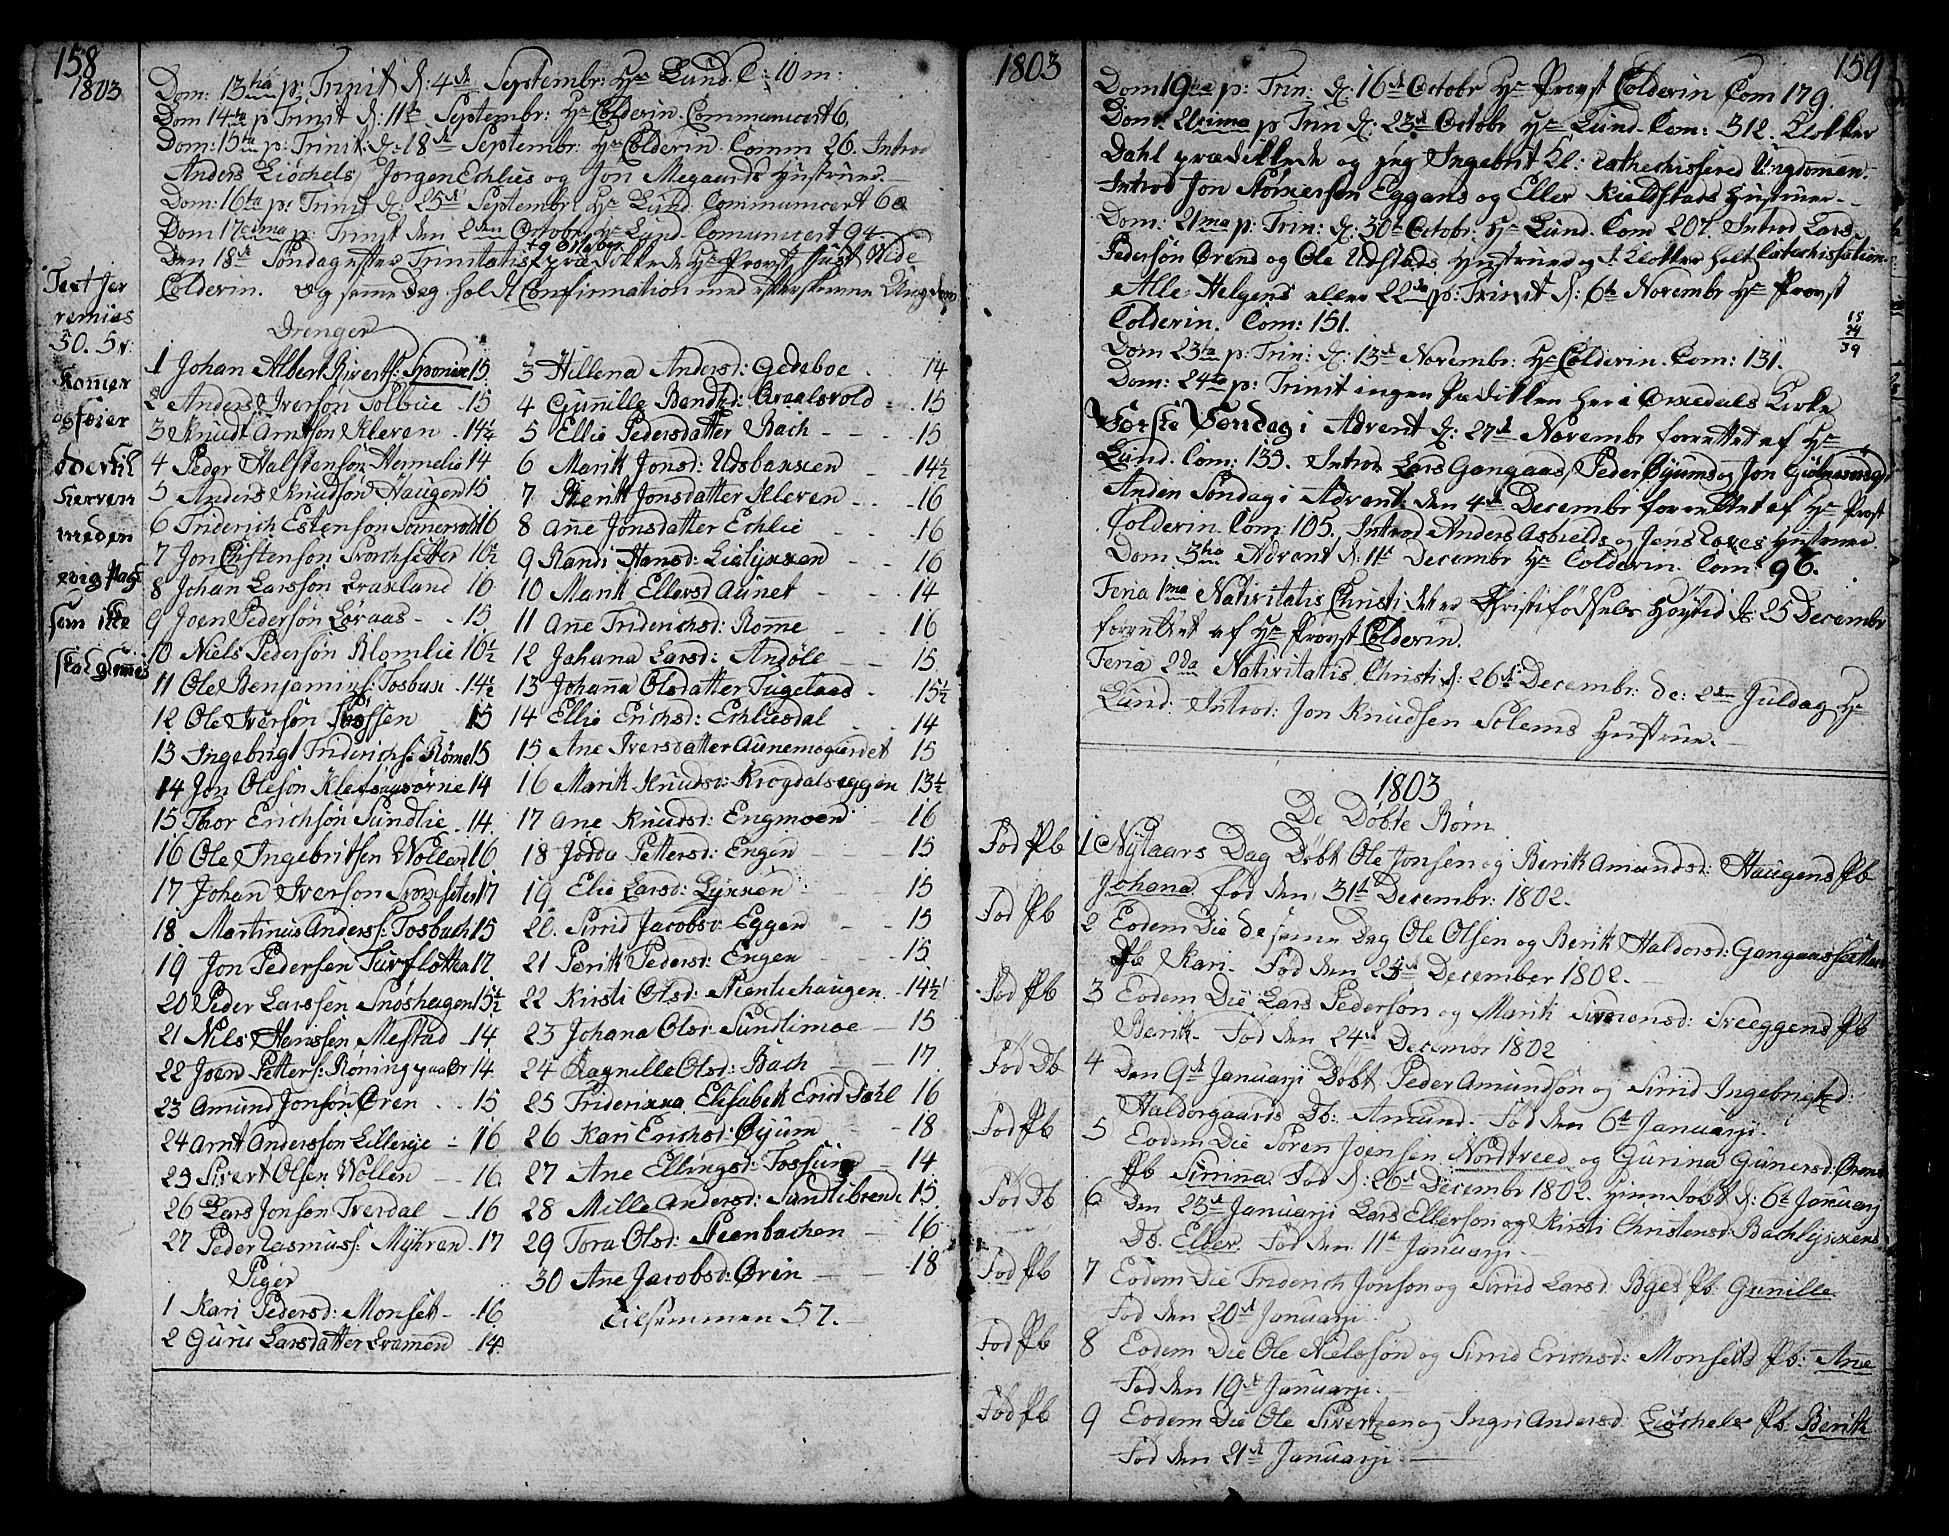 158
1803
Dom: 13tia p: Trinit d: 4de Septembr: Hr: Lund. C: 10 m:
Dom 14ta p Trinit d: 11te Septembr: Hr Colderin. Communicert 6.
Dom: 15ta p: Trinit: d: 18de Septembr: Hr Colderin. Comm 26. Introd
Anders Liøchels Jørgen Echlies og Jon Megaards Hustruer.
Dom: 16ta p: Trinit d: 25de Septembr: Hr Lund. Communicert 60
Dom 17cima p: Trinit den 2den Octobr: Hr Lund. Comunicert 94
Den 18de Søndag efter Trinitatis d 9 Octobr prædikkede Hr Provst Just Wide
Colderin. og samme Dag holdt Confirmation med efterskrevne Ungdom
Text Jer
remias
50. 5v:
Kommer
og føier
eder til
Herren
med en
evig Pagt
som ikke
skal glemmes
Drenger
1 Johan Albert Sivertss: 15
2 Anders Iversøn Solbue 15
3 Knudt Arntsøn Kleven 14½
4 Peder Halstensøn Hemmelie 14
5 Anders Knudsøn Haugen 15
6 Friderich Estensøn Somervold 16
7 Jon Christensøn Svorchsetter 16½
8 Johan Larssøn Qvasland 16
9 Joen Pedersøn Løraas 15
10 Niels Pedersøn Blomlie 16½
11 Ole Benjamins: Fosbux 14½
12 Ole Iversøn 15
13 Ingebrigt Friderichs: Rømme 15
14 Jon Olesøn Klefsaugsørne 14
15 Thor Erichsøn Sundlie 14
16 Ole Ingebritsen Wollen 16
17 Johan Iversøn Svorchseter 17
18 Martinus Anderss: Fosbach 15
19 Jon Pedersen Furflotten 17
20 Peder Larssen Snøshagen 15½
21 Nils Henssen Mestad 14
22 Joen Petters: Røning paa Ør 14
23 Amund Jonsøn Øren 15
24 Arnt Anderssøn Lillevie 16
25 Sivert Olsen Wollen 16
26 Lars Jonsøn Tverdal 16
27 Peder Rasmuss: Myhren 17
Piger
1 Kari Pedersd: Monset 16
2 Guru Larsdatter Evamoen 14
3 Hellena Andersd: Gedeboe 14
4 Gunille Bendtzd: Qvaalsvold 15
5 Ellie Pedersdatter Bach 15
6 Marit Jonsd: Udsbacken 14½
7 Berit Jonsdatter Kleven 16
8 Ane Jonsdatter Echlie 16
9 Randi Hansd: Lieløkken 16
10 Marit Ellersd Aunet 14
11 Ane Friderichsd: Romme 16
12 Johana Larsd: Andøle 15
13 Johana Olsdatter Fugelaas 15½
14 Ellie Erichsd: Echliesdal 14
15 Ane Iversdatter Aunemogierdet 15
16 Marit Knudsd: Krogdalseggen 13½
17 Ane Knudsd: Engmoen 16
18 Jødda Pettersd: Engen 15
19 Elie Larsd: Lykken 15
20. Sirrid Jacobsd: Eggen 15
21 Berit Pedersd: Engen 15
22 Kirsti Olsd: 14½
23 Johana Olsd: Sundlimoe 15
24 Ragnille Olsd: Bach 17
25 Friderikka Elisabet Ericd: Dahl 16
26 Kari Erichsd: Øyum 18
27 Ane Ellingsd: Fossum 14
28 Mille Andersd: Sundlibrende 15
29 Tora Olsd: Steenbachen 16
30 Ane Jacobsd: Ørin 18
Tilsammen 57.
1803
159
Dom 19na p: Trin: d: 16de Octobr Hr Provst Colderin Com 179.
Dom: 20sima p Trin d: 23de Octobr Hr Lund. Com: 312. Klokker
Dahl prædikkede og jeg Ingebrit Kl: Cathechisered Ungdomen.
Introd Jon Størkersøn Eggans og Eller Kieldstads Hustruer.
Dom: 21ma p: Trin: d: 30te Octobr: Hr Lund. Com 207. Introd Lars
Pedersøn Ørens og Ole Udstads Hustruer og Klokker holt Catechisation
Alle Helgens eller 22de p: Trinit d: 6te Novembr Hr Provst
Colderin. Com: 151.
15
24
39
Dom 23tia p: Trin: d: 13de Novembr: Hr Colderin. Com: 131.
Dom: 24ta p: Trinit ingen Prædikken her i Orkedals Kirke
Første Søndag i Advent d: 27de Novembr forrettet af Hr
Lund. Com: 135. Introd Lars Gangaas, Peder Øyums og Jon
Anden Søndag i Advent den 4de Decembr forrettet af Hr Provst
Colderin. Com: 105. Introd Anders Asbields og Jens Hustruer
Dom: 3tia Advent d: 11te Decembr Hr Colderin. Com: 96.
Feria 1ma Nativitatis Christi det er Christi fødsels Høytid d: 25 Decembr
forrettet af Hr Provst Colderin.
Feria 2da Nativitatis Christi d: 26de Decembr: de: 2den Juldag Hr
Lund: Introd: Jon Knudsen Solems Hustrue.
1803
De Døbte Børn
Fød Pb 1 Nytaars Dag Døbt Ole Jonsen og Berit Amundsd: Haugens Pb
Johana. fød den 31te Decembr: 1802.
Fød Pb 2 Eodem Die de samme Dag Ole Olsen og Berit Haldorsd: Gangaassætter
Pb Kari. Fød den 25de December 1802.
Fød Pb 3 Eodem Die Lars Pedersøn og Marit Simensd: Pb
Berit. Fød den 24de Decembr 1802
Fød Db 4 Den 9de Januarji Døbt Peder Amundsøn og Sirrid Ingebrigtzd:
Haldorgaards Db: Amund. Fød den 6te Januarji.
Fød Pb 5 Eodem Die Søren Joensen Nordtreed og Gurina Gunersd: Ørens
Pb Sirrinna. Fød d: 26de Decembr 1802. Hiem døbt d: 6te Januarj
Fød Db 6 Den 23de Januarji Lars Ellersøn og Kirsti Christensd: Bachløkkens
Db. Eller. Fød den 11te Januarji.
Fød Pb 7 Eodem Die Friderich Jonsøn og Sirrid Larsd: Byes Pb. Gunille.
Fød den 20de Januarji.
Fød Pb 8 Eodem Die Ole Nielssøn og Sirrid Erichsd: Monsets Pb: Ane
Fød den 19de Januarji.
Fød Pb 9 Eodem Die Ole Sivertzen og Ingri Andersd: Liøchels Pb Berit
Fød den 21de Januarji.